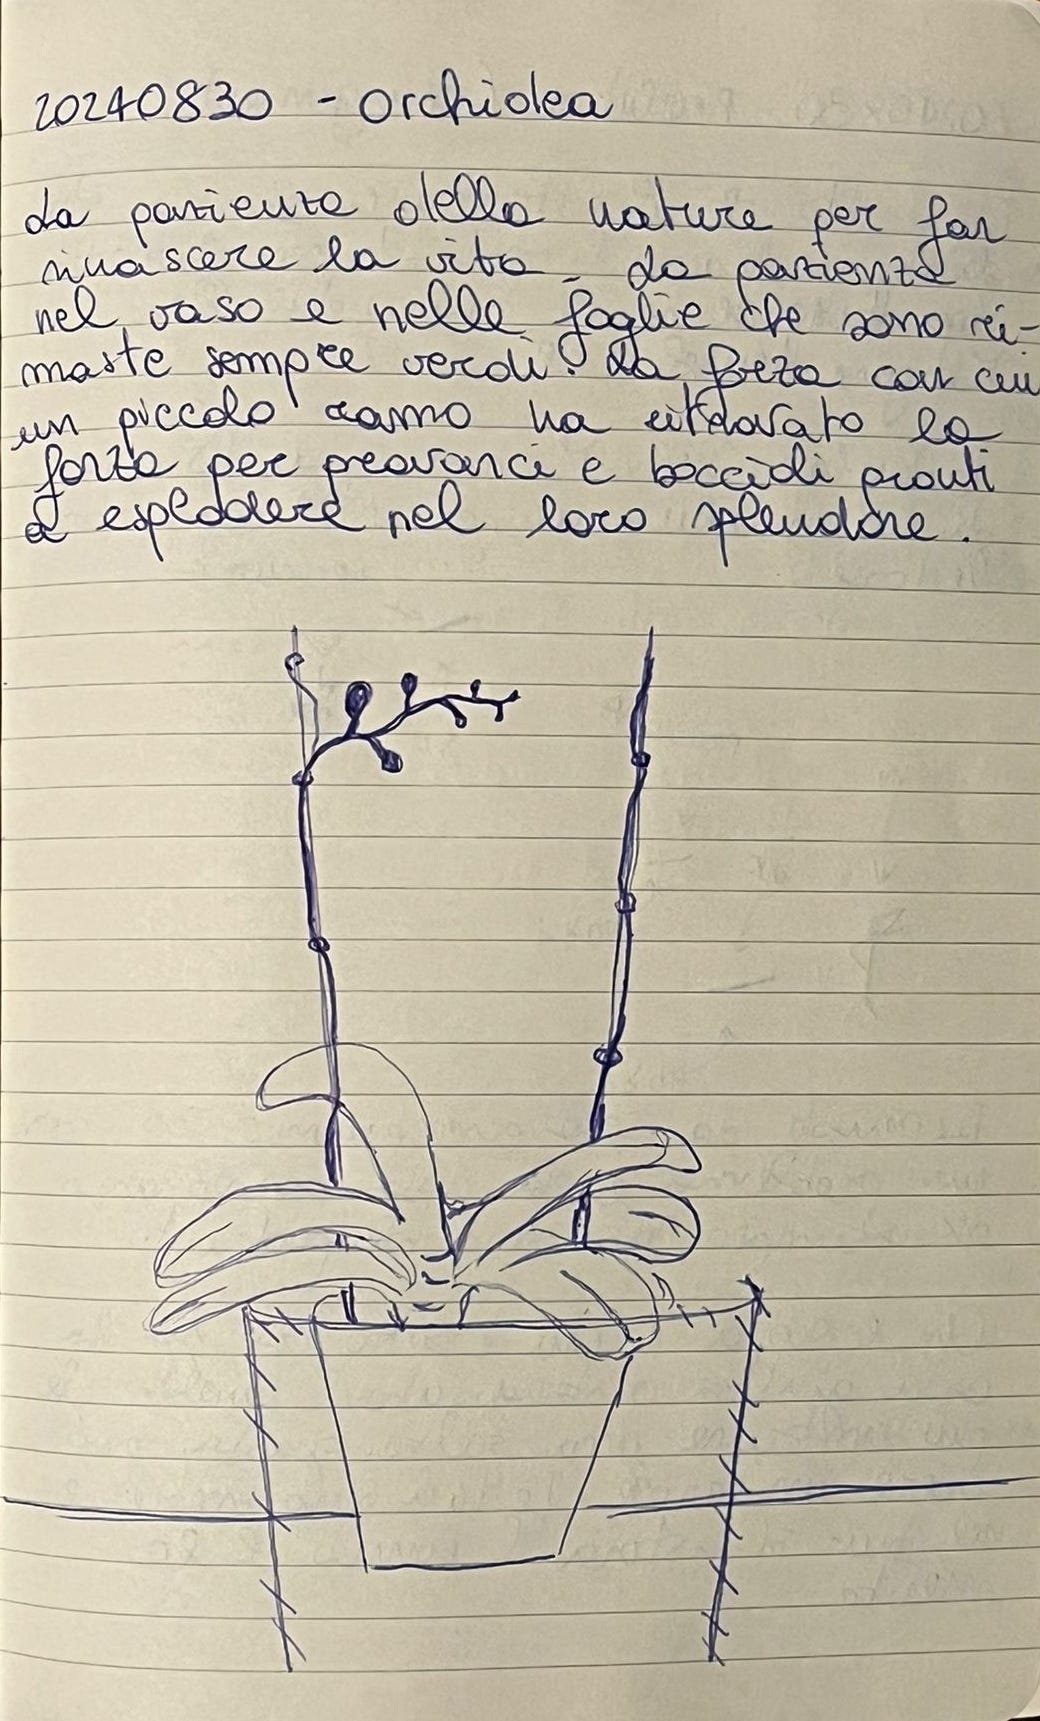 20240830 - Orchidea
La pazienza della natura per far
rinascere la vita. La pazienza
nel vaso e nelle foglie che sono ri-
maste sempre verdi. La forza con cui
un piccolo ramo ha ritrovato la
forza per provarci e boccioli pronti
a esplodere nel loro splendore.